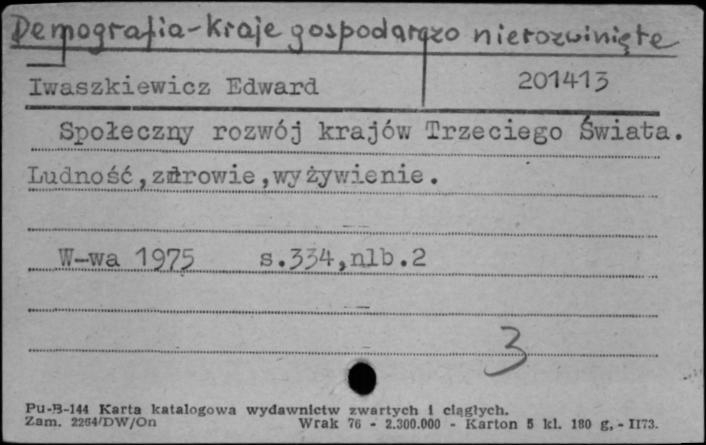 Demografia-kraje gospodarczo nierozwinięte
Iwaszkiewicz Edward 201413
Społeczny rozwój krajów Trzeciego Świata.
Ludność,zdrowie,wyżywienie.
W-wa 1975 s.334,nlb.2
3
Pu-B-144 Karta katalogowa wydawnictw zwartych i ciągłych.
Zam. 2264/DW/On Wrak 76 - 2.300.000 - Karton 5 kl. 180 g. - II73.